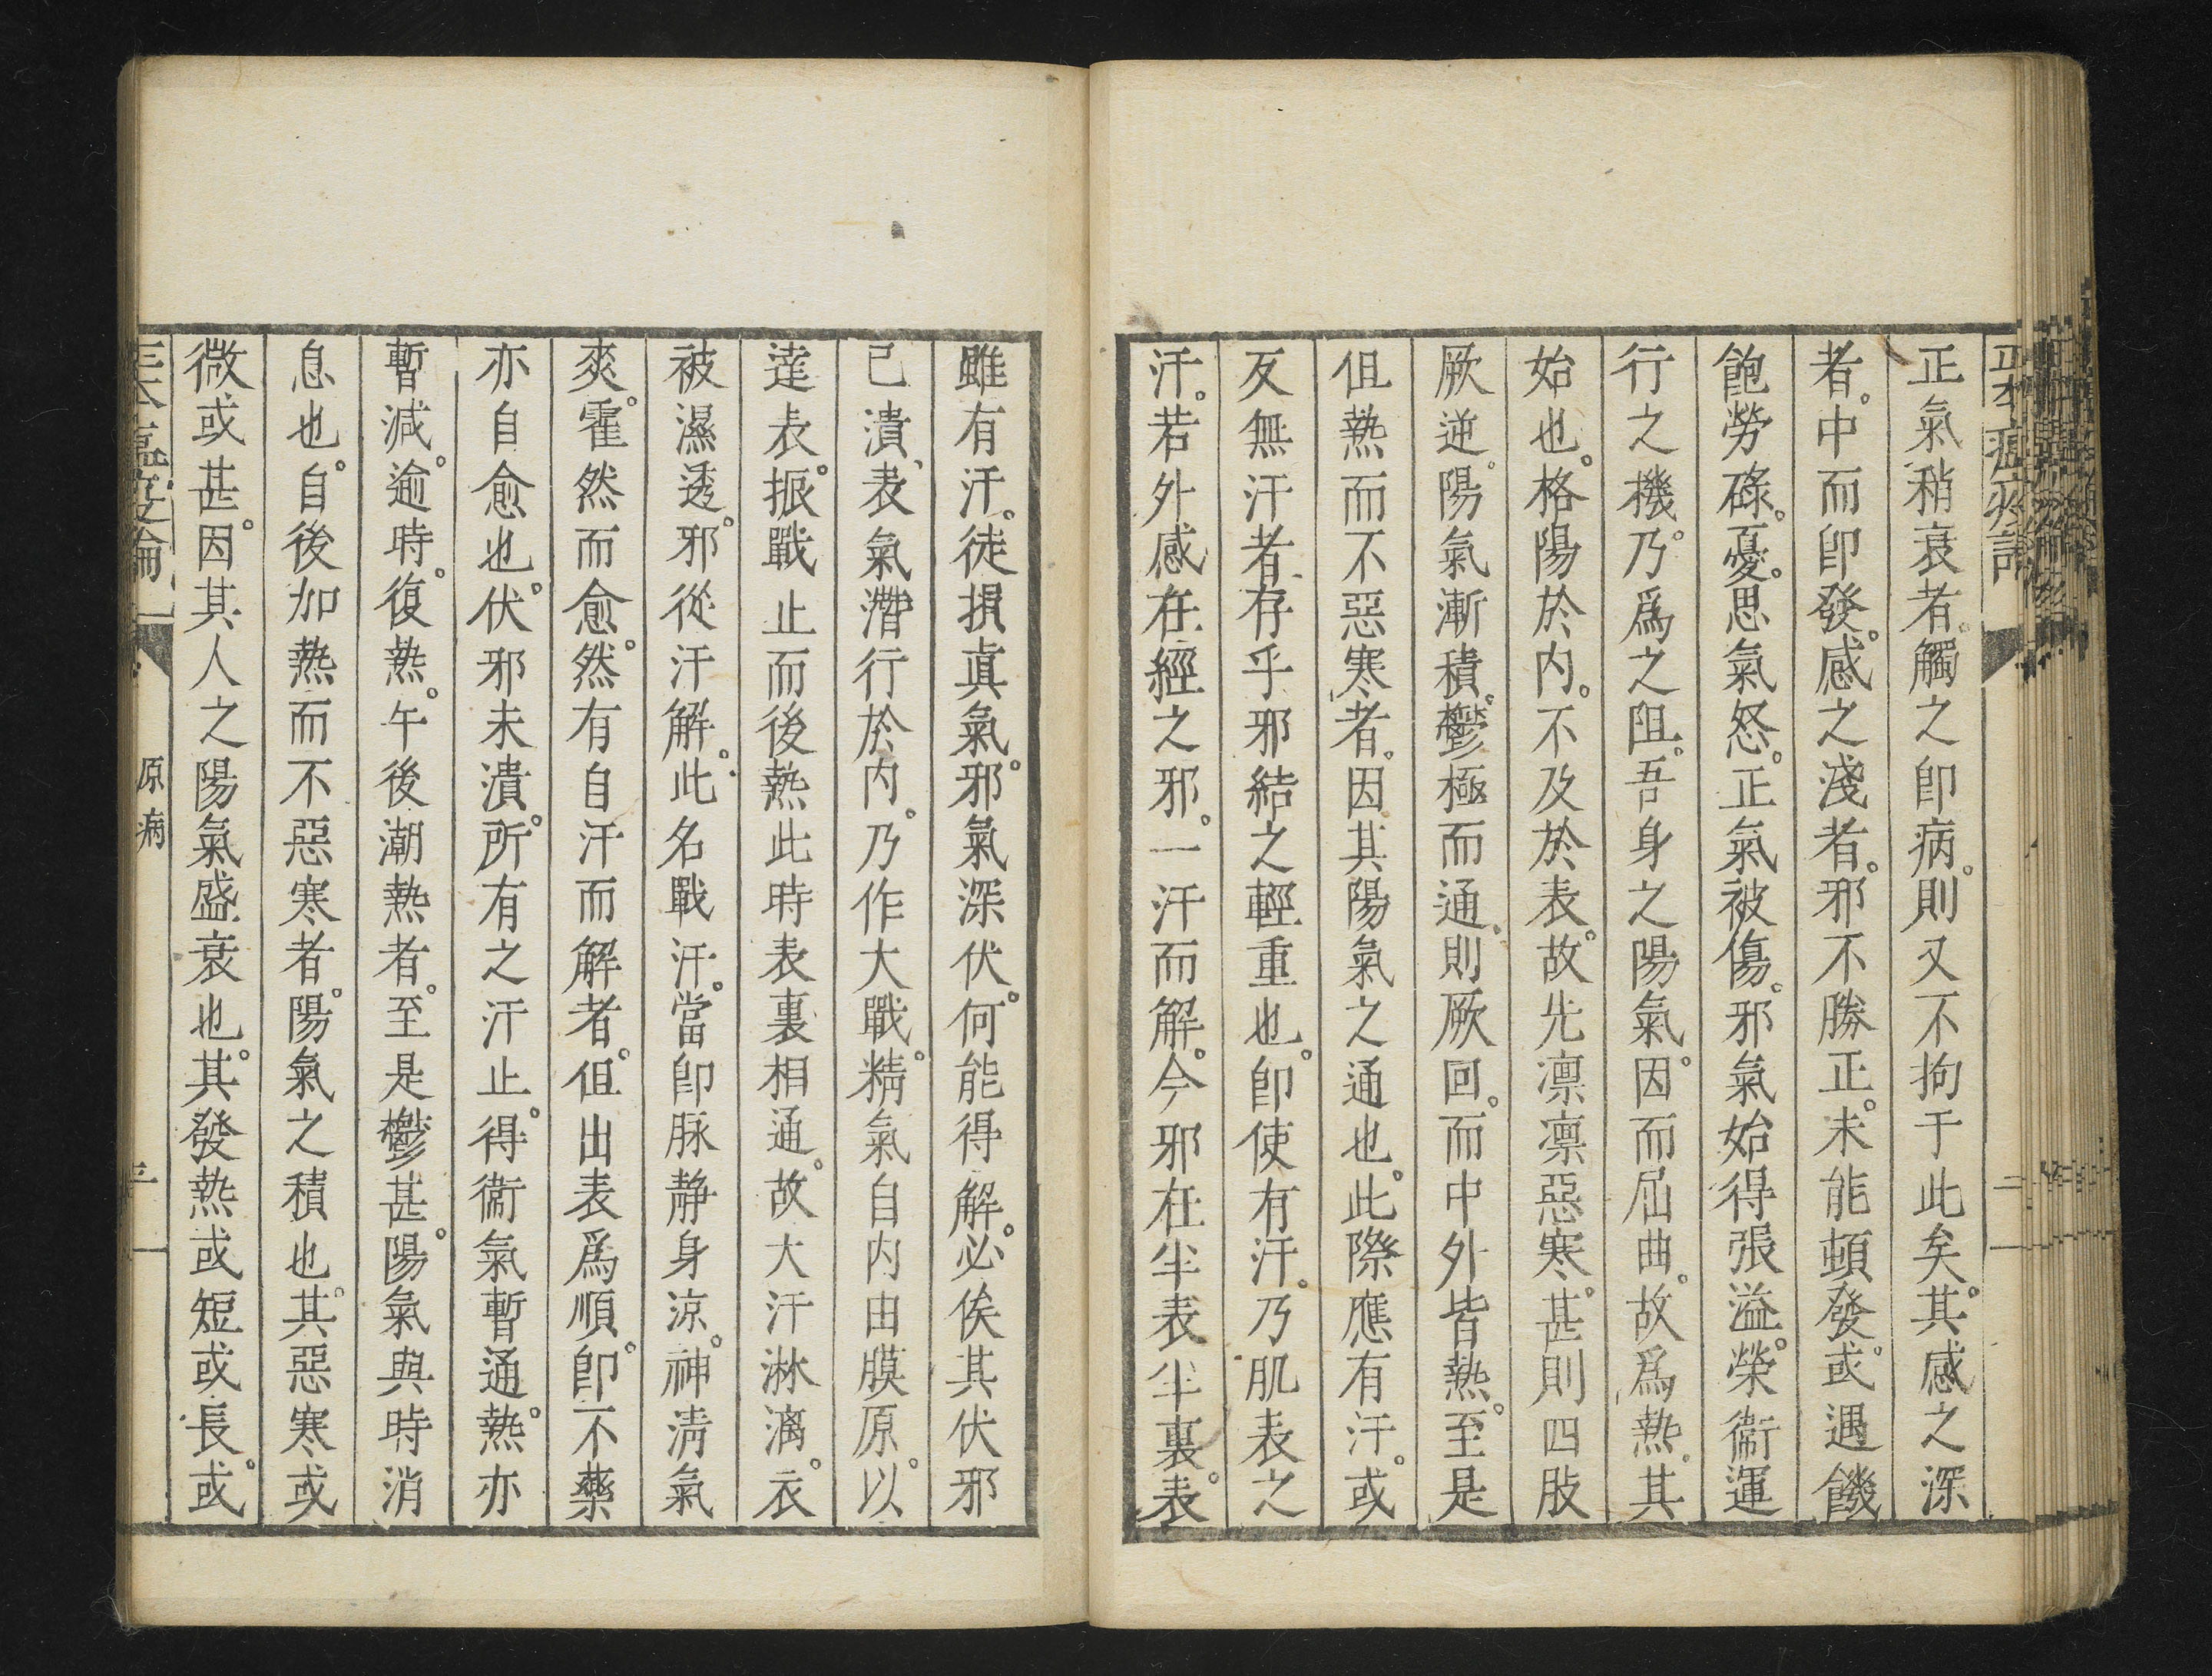 正氣稍衰者。觸之卽病。則又不拘于此矣。其感之深
者。中而卽發。感之淺者。邪不勝正。未能頓發。或遇饑
飽勞碌。憂思氣怒。正氣被傷。邪氣始得張溢。榮衞運
行之機。乃爲之阻。吾身之陽氣。因而屈曲。故爲熱。其
始也。格陽於内。不及於表。故先凛凛惡寒。甚則四肢
厥逆。陽氣漸積。鬱極而通。則厥回。而中外皆熱。至是
但熱而不惡寒者。因其陽氣之通也。此際應有汗。或
反無汗者。存乎邪結之輕重也。卽使有汗。乃肌表之
汗。若外感在經之邪。一汗而解。今邪在半表半裏。表
雖有汗。徒損眞氣。邪氣深伏。何能得解。必俟其伏邪
已潰、表氣潛行於内。乃作大戰。精氣自内由膜原。以
達表。振戰止而後熱此時表裏相通。故大汗淋漓。衣
被濕透。邪從汗解。此名戰汗。當卽脉静身凉。神清氣
爽。霍然而愈。然有自汗而解者。但出表爲順。卽不藥
亦自愈也。伏邪未潰。所有之汗止。得衞氣暫通。熱亦
暫减。逾時。復熱。午後潮熱者。至是鬱甚。陽氣與時消
息也。自後加熱而不惡寒者。陽氣之積也。其惡寒或
微或甚。因其人之陽氣盛衰也。其發熱或短或長。或
原病
三